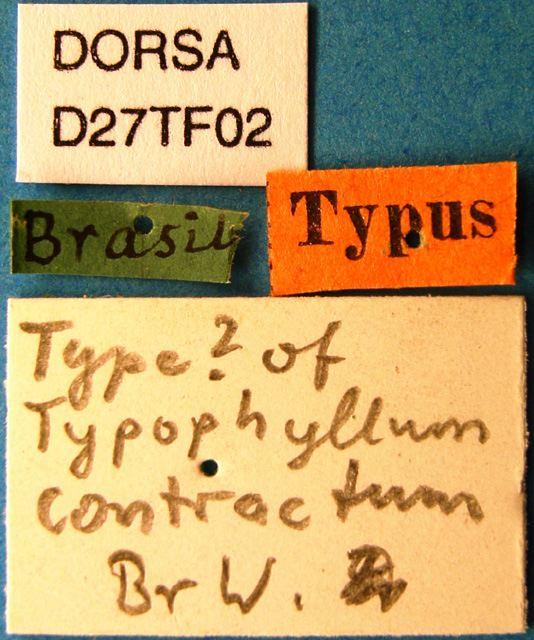 DORSA
D27TF02
Brasil
Typus
Type? of
Typophyllum
contractum
Br W.